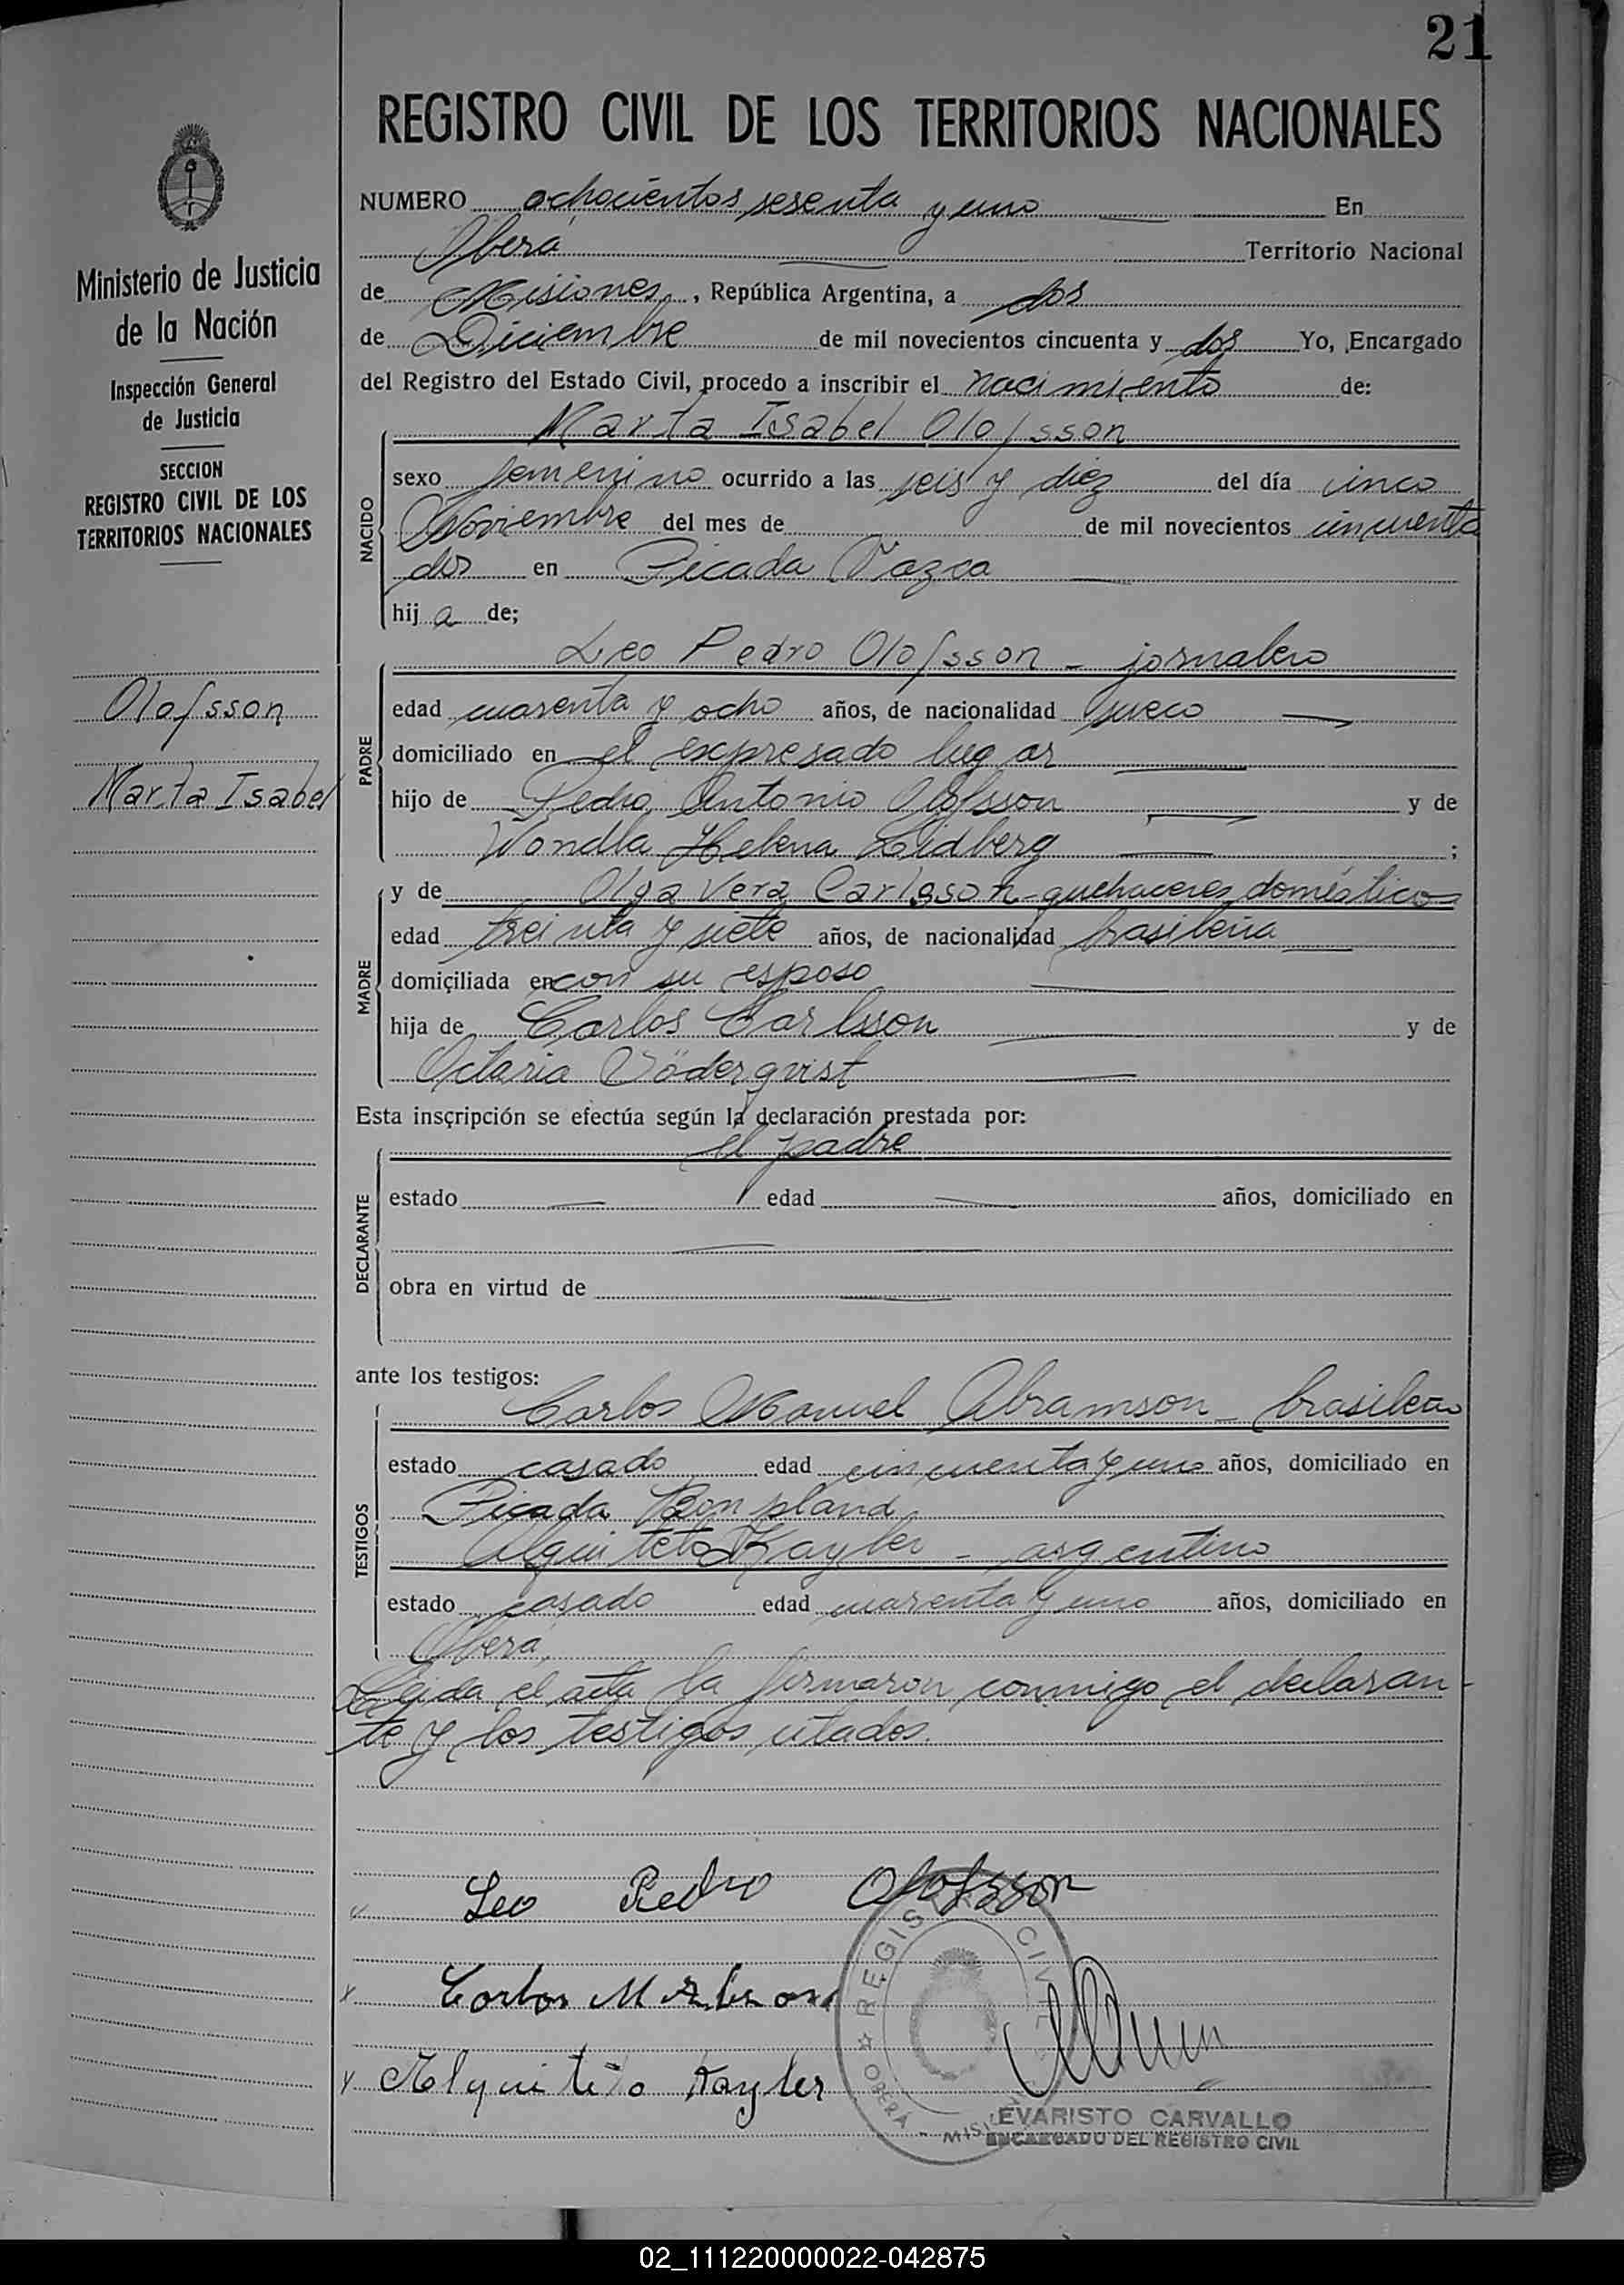 21
REGISTRO CIVIL DE LOS TERRITORIOS NACIONALES
Ministerio de Justicia
de la Nación
Inspección General
de Justicia
SECCION
REGISTRO CIVIL DE LOS
TERRITORIOS NACIONALES
Olofsson
Marta Isabel
NUMERO ochocientos sesenta y uno En
Oberá Territorio Nacional
de Misiones, República Argentina, a dos
de Diciembre de mil novecientos cincuenta y dos Yo, Encargado
del Registro del Estado Civil, procedo a inscribir el nacimiento de:
Marta Isabel Olofsson
NACIDO
sexo femenino ocurrido a las seis y diez del día cinco
Noviembre del mes de de mil novecientos cincuenta
dos en Picada
hij a de;
Leo Pedro Olofsson - jornalero
PADRE
edad cuarenta y ocho años, de nacionalidad sueco
domiciliado en el expresado lugar
hijo de Pedro Antonio Olofsson y de
Helena Lidberg ;
y de Olga Vera Carlsson - quehaceres domésticos
MADRE
edad treinta y siete años, de nacionalidad brasileña
domiciliada en con su esposo
hija de Carlos Carlsson y de
Octaria
Esta inscripción se efectúa según la declaración prestada por:
el padre
DECLARANTE
estado edad años, domiciliado en
obra en virtud de
ante los testigos:
Carlos Manuel Abramson - brasilero
TESTIGOS
estado casado edad cincuenta y uno años, domiciliado en
Picada Bonpland
Kayler - argentino
estado casado edad cuarenta y uno años, domiciliado en
Oberá,
Leída el acta la firmaron conmigo el declaran-
te y los testigos citados.
Leo Pedro Olofsson
Carlos M
Kayler
REGISTRO CIVIL
OBERÁ - MISIONES
EVARISTO CARVALLO
ENCARGADO DEL REGISTRO CIVIL
02_111220000022-042875